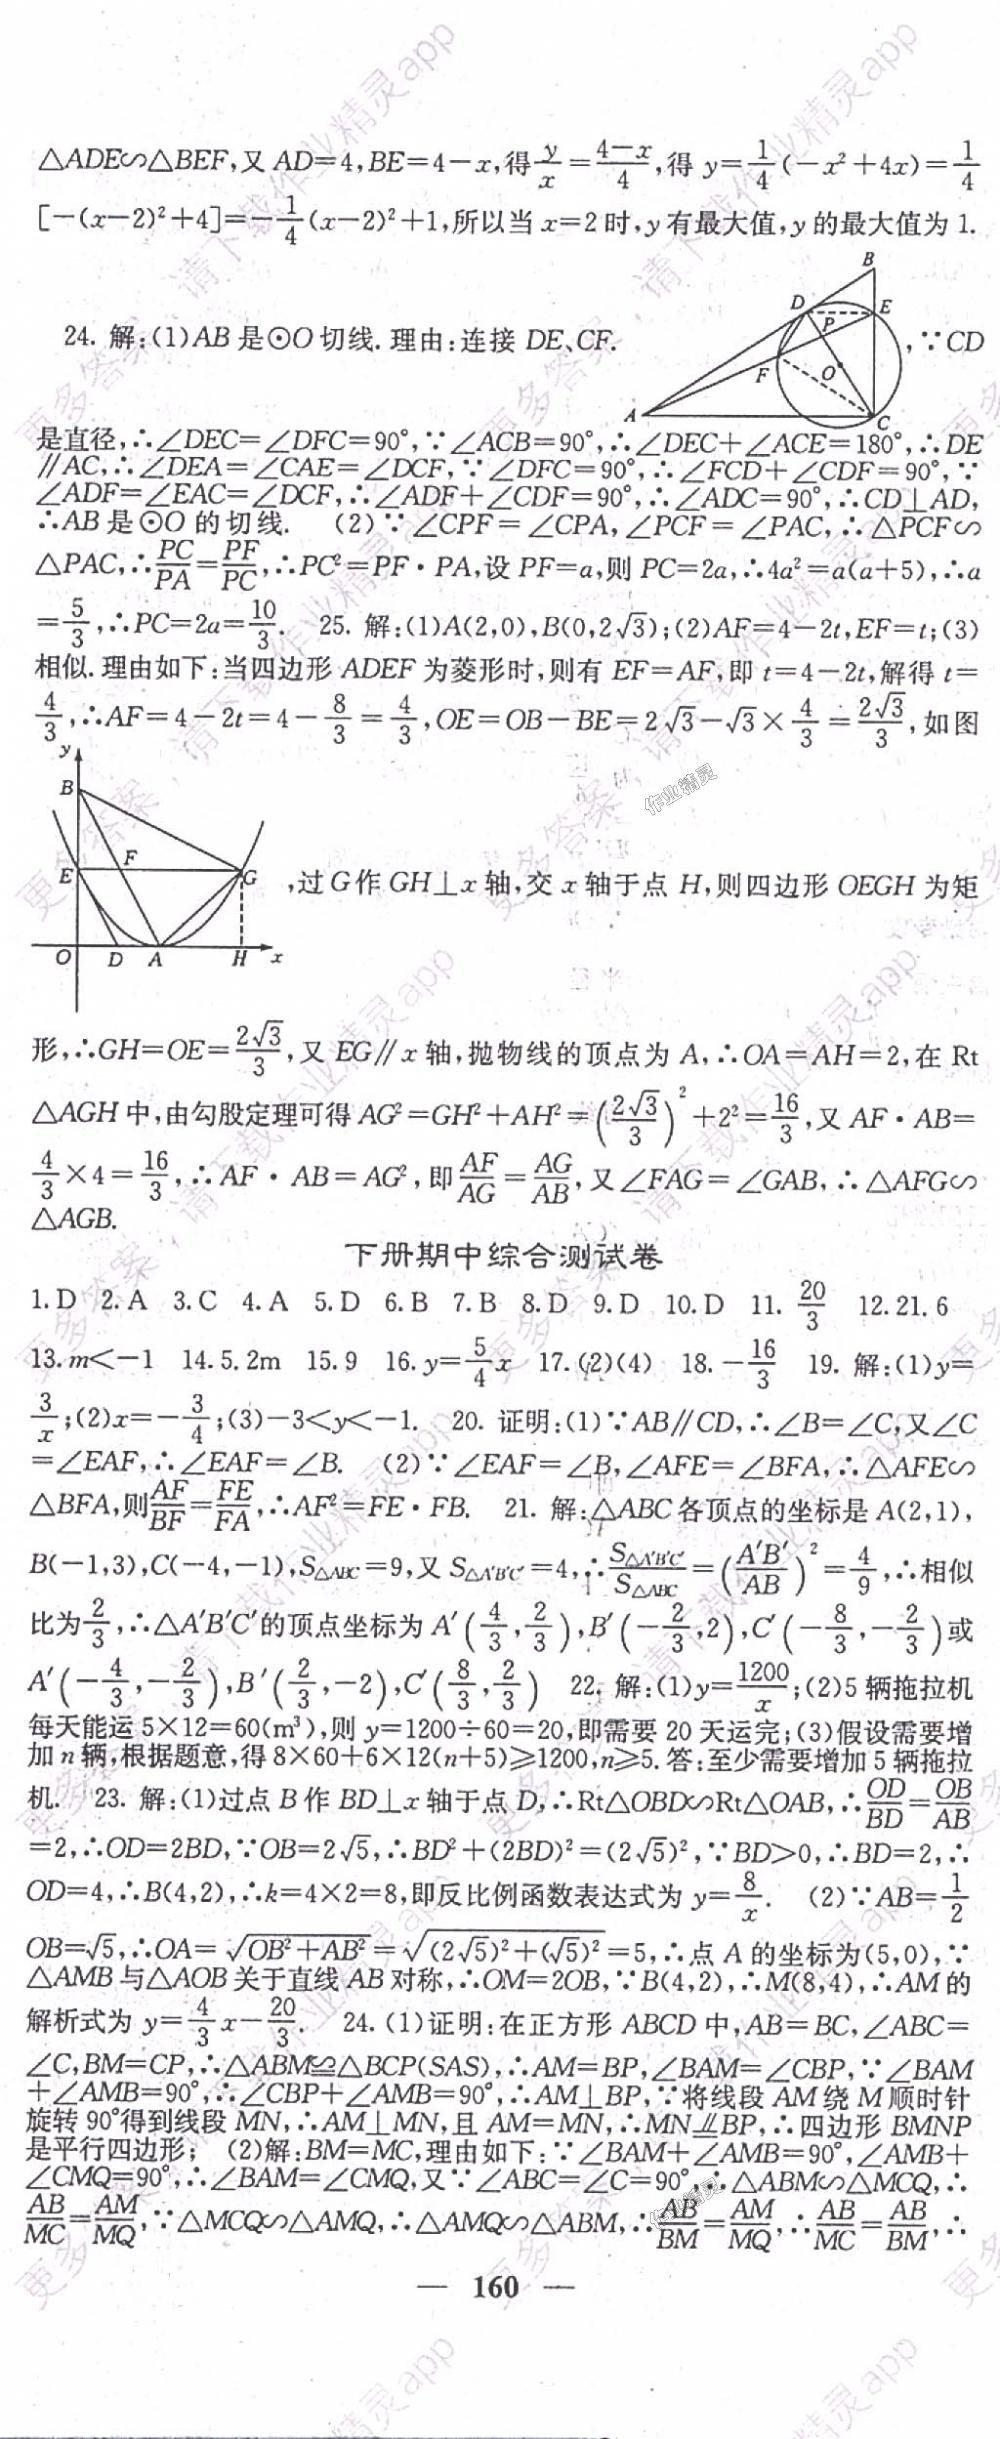 △ADE∽△BEF,又 AD=4,BE=4-x,得y/x=(4-x)/4,得 y=1/4(-x²+4x)=1/4
[-(x-2)²+4]=-1/4(x-2)²+1,所以当 x=2时,y有最大值,y的最大值为 1.
B
D E
P
24. 解:(1)AB 是⊙O切线.理由:连接 DE、CF. ,∵CD
F O
A C
是直径,∴∠DEC=∠DFC=90°,∵∠ACB=90°,∴∠DEC+∠ACE=180°,∴DE
∥AC,∴∠DEA=∠CAE=∠DCF,∵∠DFC=90°,∴∠FCD+∠CDF=90°,∵
∠ADF=∠EAC=∠DCF,∴∠ADF+∠CDF=90°,∴∠ADC=90°,∴CD⊥AD,
∴AB是⊙O 的切线. (2)∵∠CPF=∠CPA,∠PCF=∠PAC,∴△PCF∽
△PAC,∴PC/PA=PF/PC,∴PC²=PF·PA,设 PF=a,则 PC=2a,∴4a²=a(a+5),∴a
=5/3,∴PC=2a=10/3. 25. 解:(1)A(2,0),B(0,2√3);(2)AF=4-2t,EF=t;(3)
相似.理由如下:当四边形 ADEF 为菱形时,则有 EF=AF,即 t=4-2t,解得 t=
4/3,∴AF=4-2t=4-8/3=4/3,OE=OB-BE=2√3-√3×4/3=2√3/3,如图
y
B
F
E G ,过G作GH⊥x轴,交x轴于点 H,则四边形 OEGH 为矩
O D A H x
形,∴GH=OE=2√3/3,又 EG∥x轴,抛物线的顶点为 A,∴OA=AH=2,在 Rt
△AGH中,由勾股定理可得 AG²=GH²+AH²=(2√3/3)²+2²=16/3,又 AF·AB=
4/3×4=16/3,∴AF·AB=AG²,即AF/AG=AG/AB,又∠FAG=∠GAB,∴△AFG∽
△AGB.
下册期中综合测试卷
1.D 2.A 3.C 4.A 5.D 6.B 7.B 8.D 9.D 10.D 11. 20/3 12.21.6
13.m<-1 14.5.2m 15.9 16.y=5/4x 17.(2)(4) 18.-16/3 19. 解:(1)y=
3/x;(2)x=-3/4;(3)-3<y<-1. 20. 证明:(1)∵AB∥CD,∴∠B=∠C,又∠C
=∠EAF,∴∠EAF=∠B. (2)∵∠EAF=∠B,∠AFE=∠BFA,∴△AFE∽
△BFA,则AF/BF=FE/FA,∴AF²=FE·FB. 21. 解:△ABC各顶点的坐标是 A(2,1),
B(-1,3),C(-4,-1),S△ABC=9,又 S△A′B′C′=4,∴S△A′B′C′/S△ABC=(A′B′/AB)²=4/9,∴相似
比为2/3,∴△A′B′C′的顶点坐标为 A′(4/3,2/3),B′(-2/3,2),C′(-8/3,-2/3)或
A′(-4/3,-2/3),B′(2/3,-2),C′(8/3,2/3) 22. 解:(1)y=1200/x;(2)5辆拖拉机
每天能运 5×12=60(m³),则 y=1200÷60=20,即需要 20 天运完;(3)假设需要增
加 n 辆,根据题意,得 8×60+6×12(n+5)≥1200,n≥5.答:至少需要增加 5 辆拖拉
机. 23. 解:(1)过点 B 作 BD⊥x轴于点 D,∴Rt△OBD∽Rt△OAB,∴OD/BD=OB/AB
=2,∴OD=2BD,∵OB=2√5,∴BD²+(2BD)²=(2√5)²,∵BD>0,∴BD=2,∴
OD=4,∴B(4,2),∴k=4×2=8,即反比例函数表达式为 y=8/x. (2)∵AB=1/2
OB=√5,∴OA=√(OB²+AB²)=√((2√5)²+(√5)²)=5,∴点 A 的坐标为(5,0),∵
△AMB与△AOB关于直线 AB 对称,∴OM=2OB,∵B(4,2),∴M(8,4),∴AM的
解析式为 y=4/3x-20/3. 24.(1)证明:在正方形 ABCD 中,AB=BC,∠ABC=
∠C,BM=CP,∴△ABM≌△BCP(SAS),∴AM=BP,∠BAM=∠CBP,∵∠BAM
+∠AMB=90°,∴∠CBP+∠AMB=90°,∴AM⊥BP,∵将线段 AM 绕 M 顺时针
旋转 90°得到线段 MN,∴AM⊥MN,且 AM=MN,∴MN⫽BP,∴四边形 BMNP
是平行四边形; (2)解:BM=MC,理由如下:∵∠BAM+∠AMB=90°,∠AMB+
∠CMQ=90°,∴∠BAM=∠CMQ,又∵∠ABC=∠C=90°,∴△ABM∽△MCQ,∴
AB/MC=AM/MQ,∵△MCQ∽△AMQ,∴△AMQ∽△ABM,∴AB/BM=AM/MQ,∴AB/MC=AB/BM,∴
— 160 —
更多答案,请下载作业精灵app
作业精灵